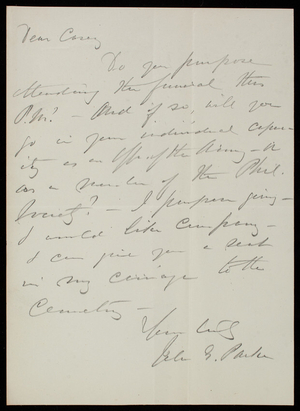 Dear Casey
Do you purpose
attending the funeral this
P.M.? - And if so, will you
go in your individual capac-
ity as an Off. of the Army - or
as a member of the Phil.
Society? - I purpose going -
I would like company -
I can give you a seat
in my carriage to the
Cemetery -
Yours truly
John G. Parke